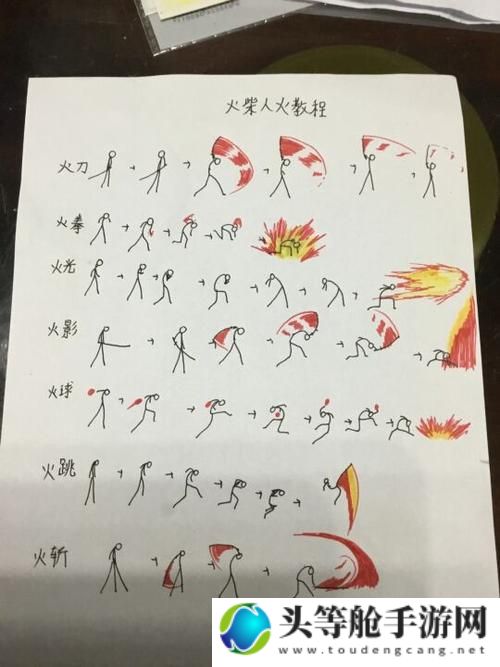 火柴人火教程
火刀
火拳
火光
火影
火球
火跳
火斩
头等舱手游网
www.toudengcang.net